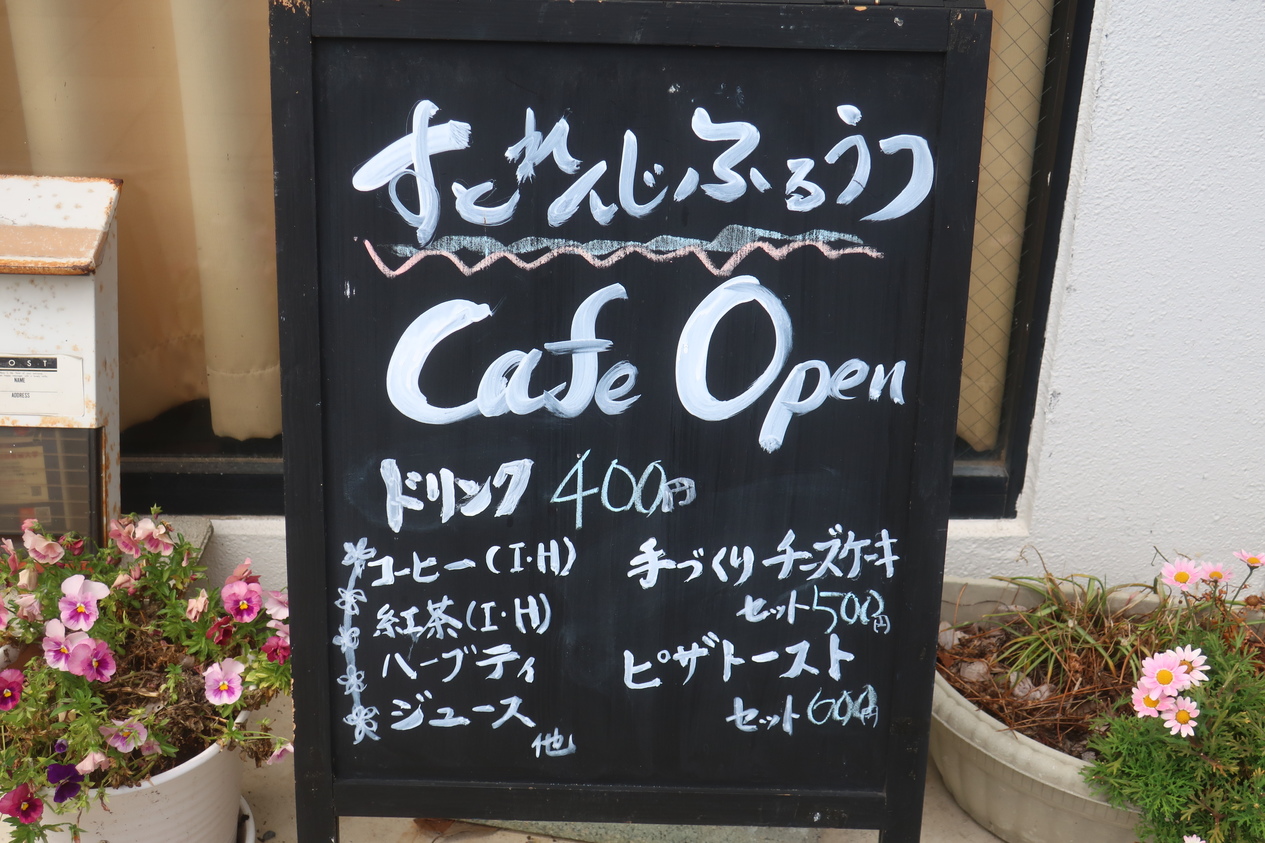 すとれんじふるうつ
Cafe Open
ドリンク 400円
コーヒー(I・H)
紅茶(I・H)
ハーブティ
ジュース
他
手づくりチーズケーキ
セット500円
ピザトースト
セット600円
OST
NAME
ADDRESS